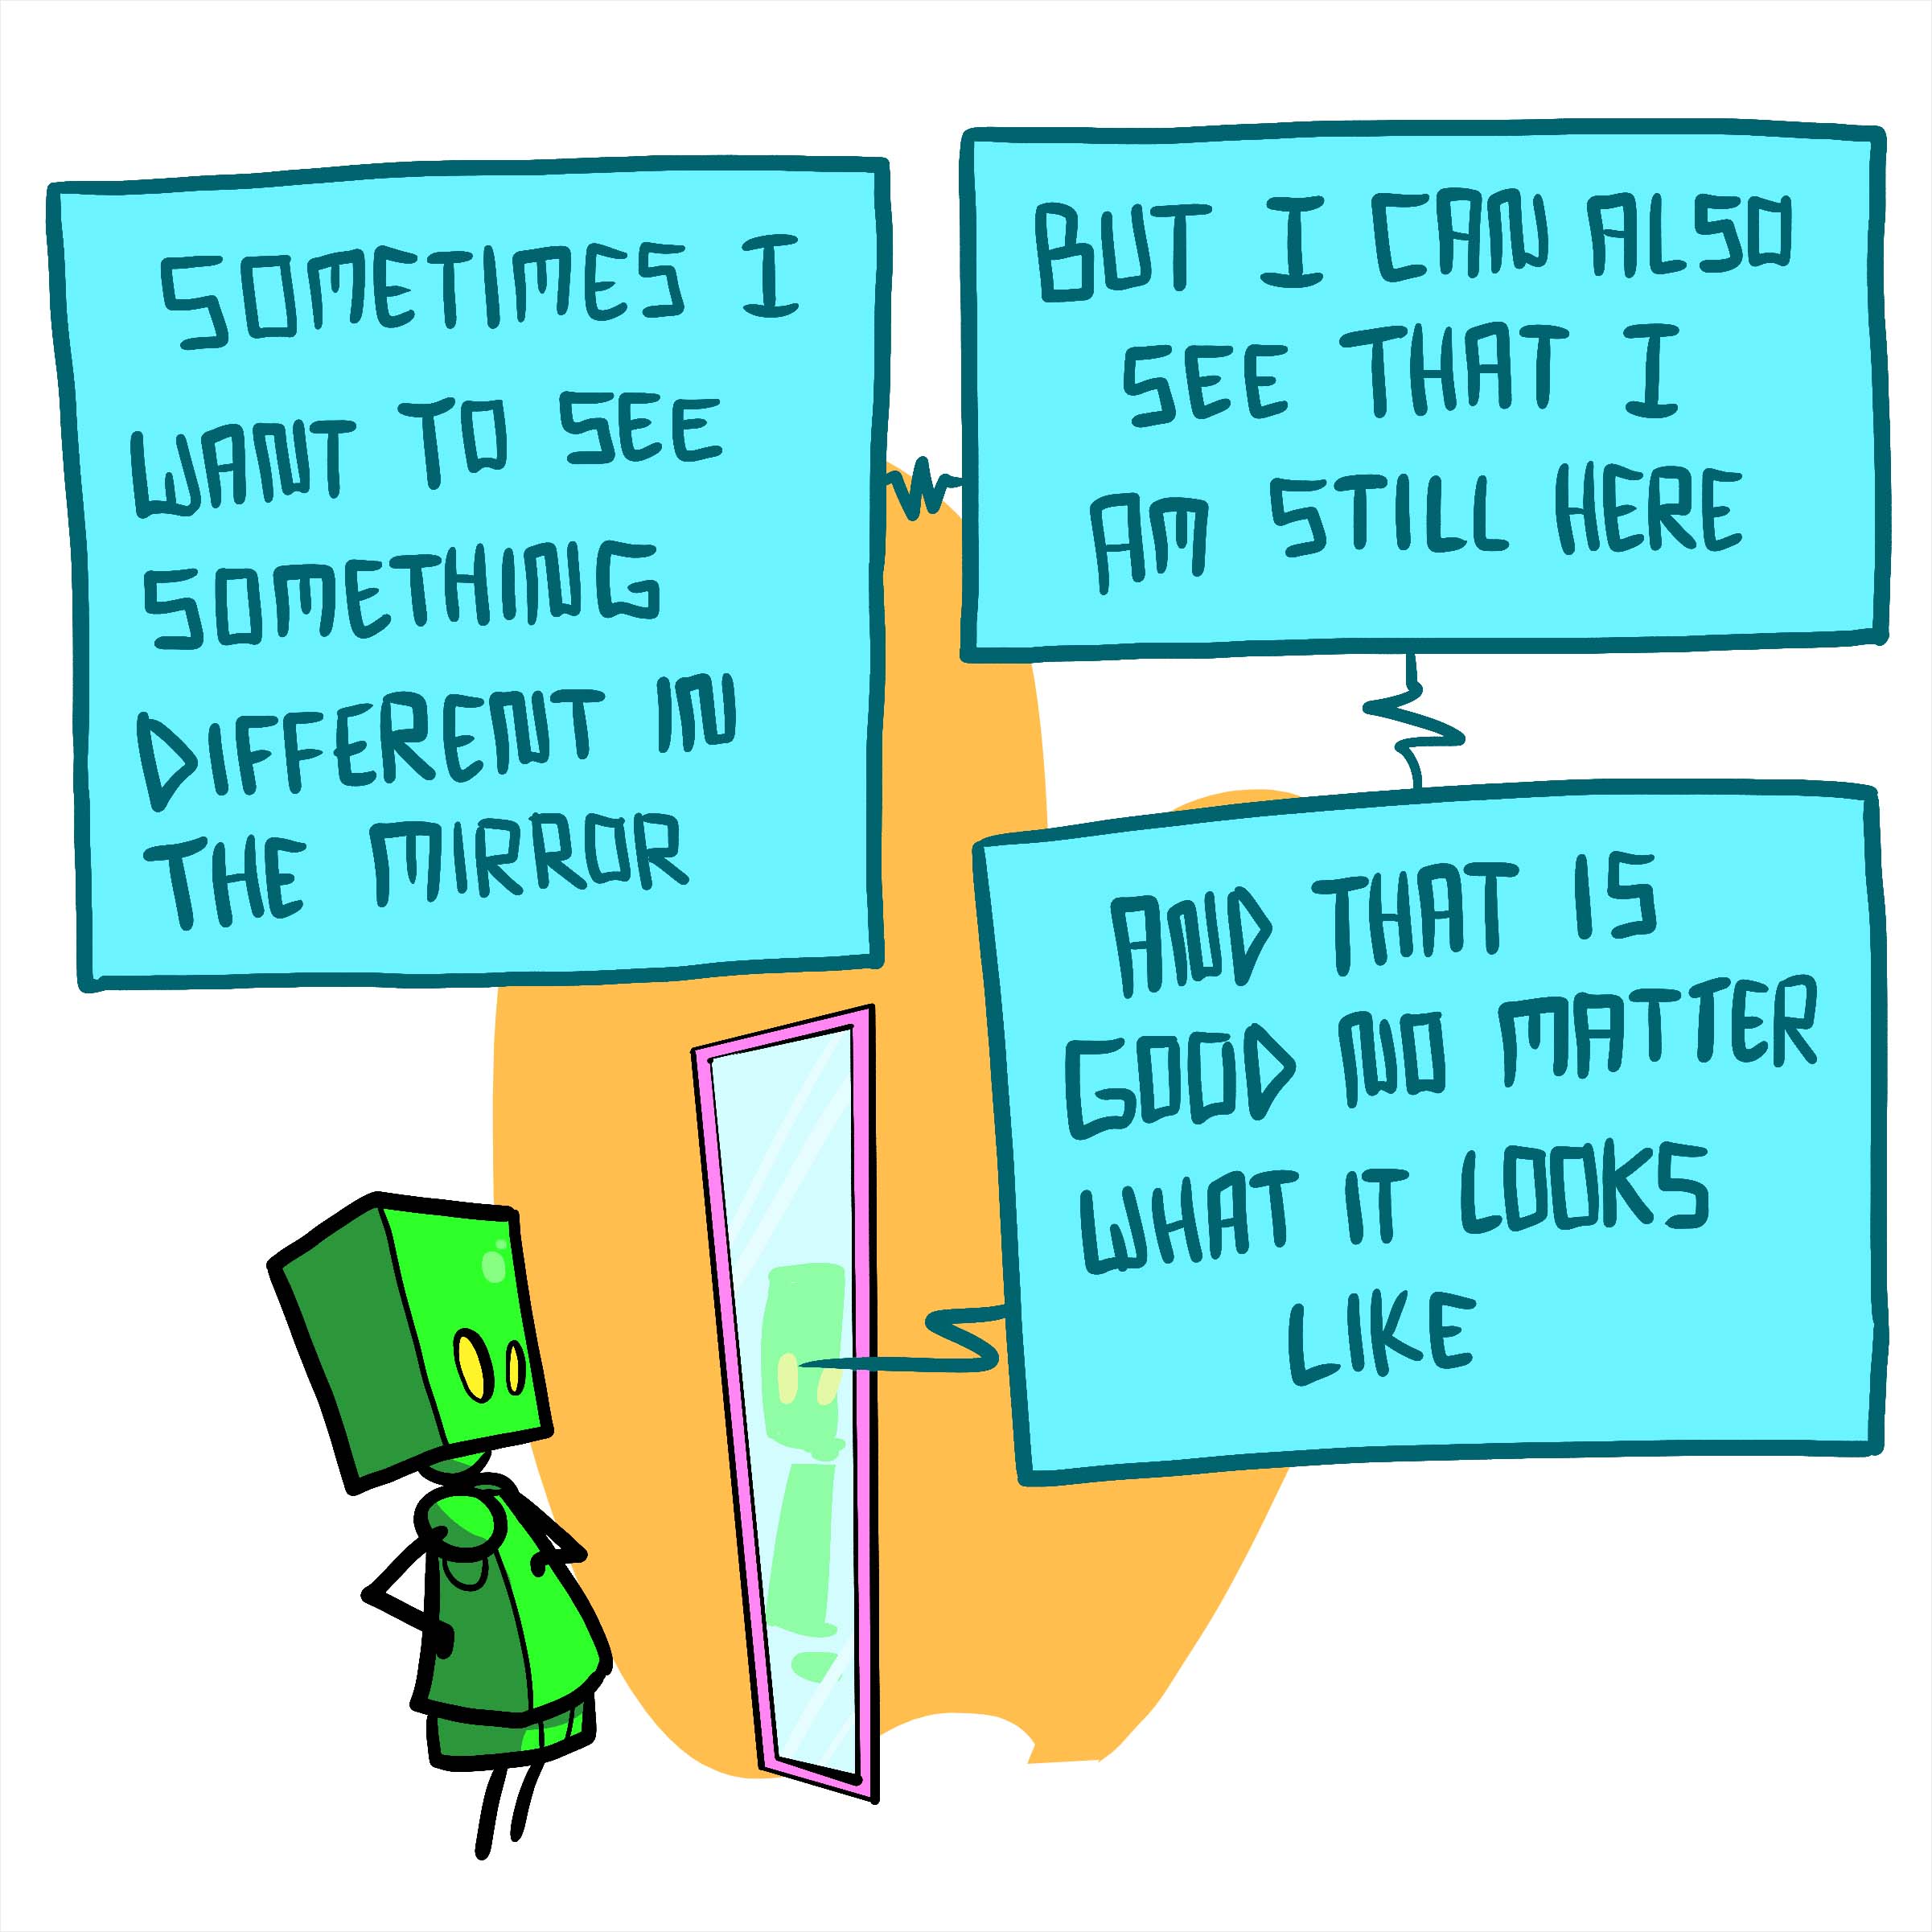 SOMETIMES I
WANT TO SEE
SOMETHING
DIFFERENT IN
THE MIRROR
BUT I CAN ALSO
SEE THAT I
AM STILL HERE
AND THAT IS
GOOD NO MATTER
WHAT IT LOOKS
LIKE